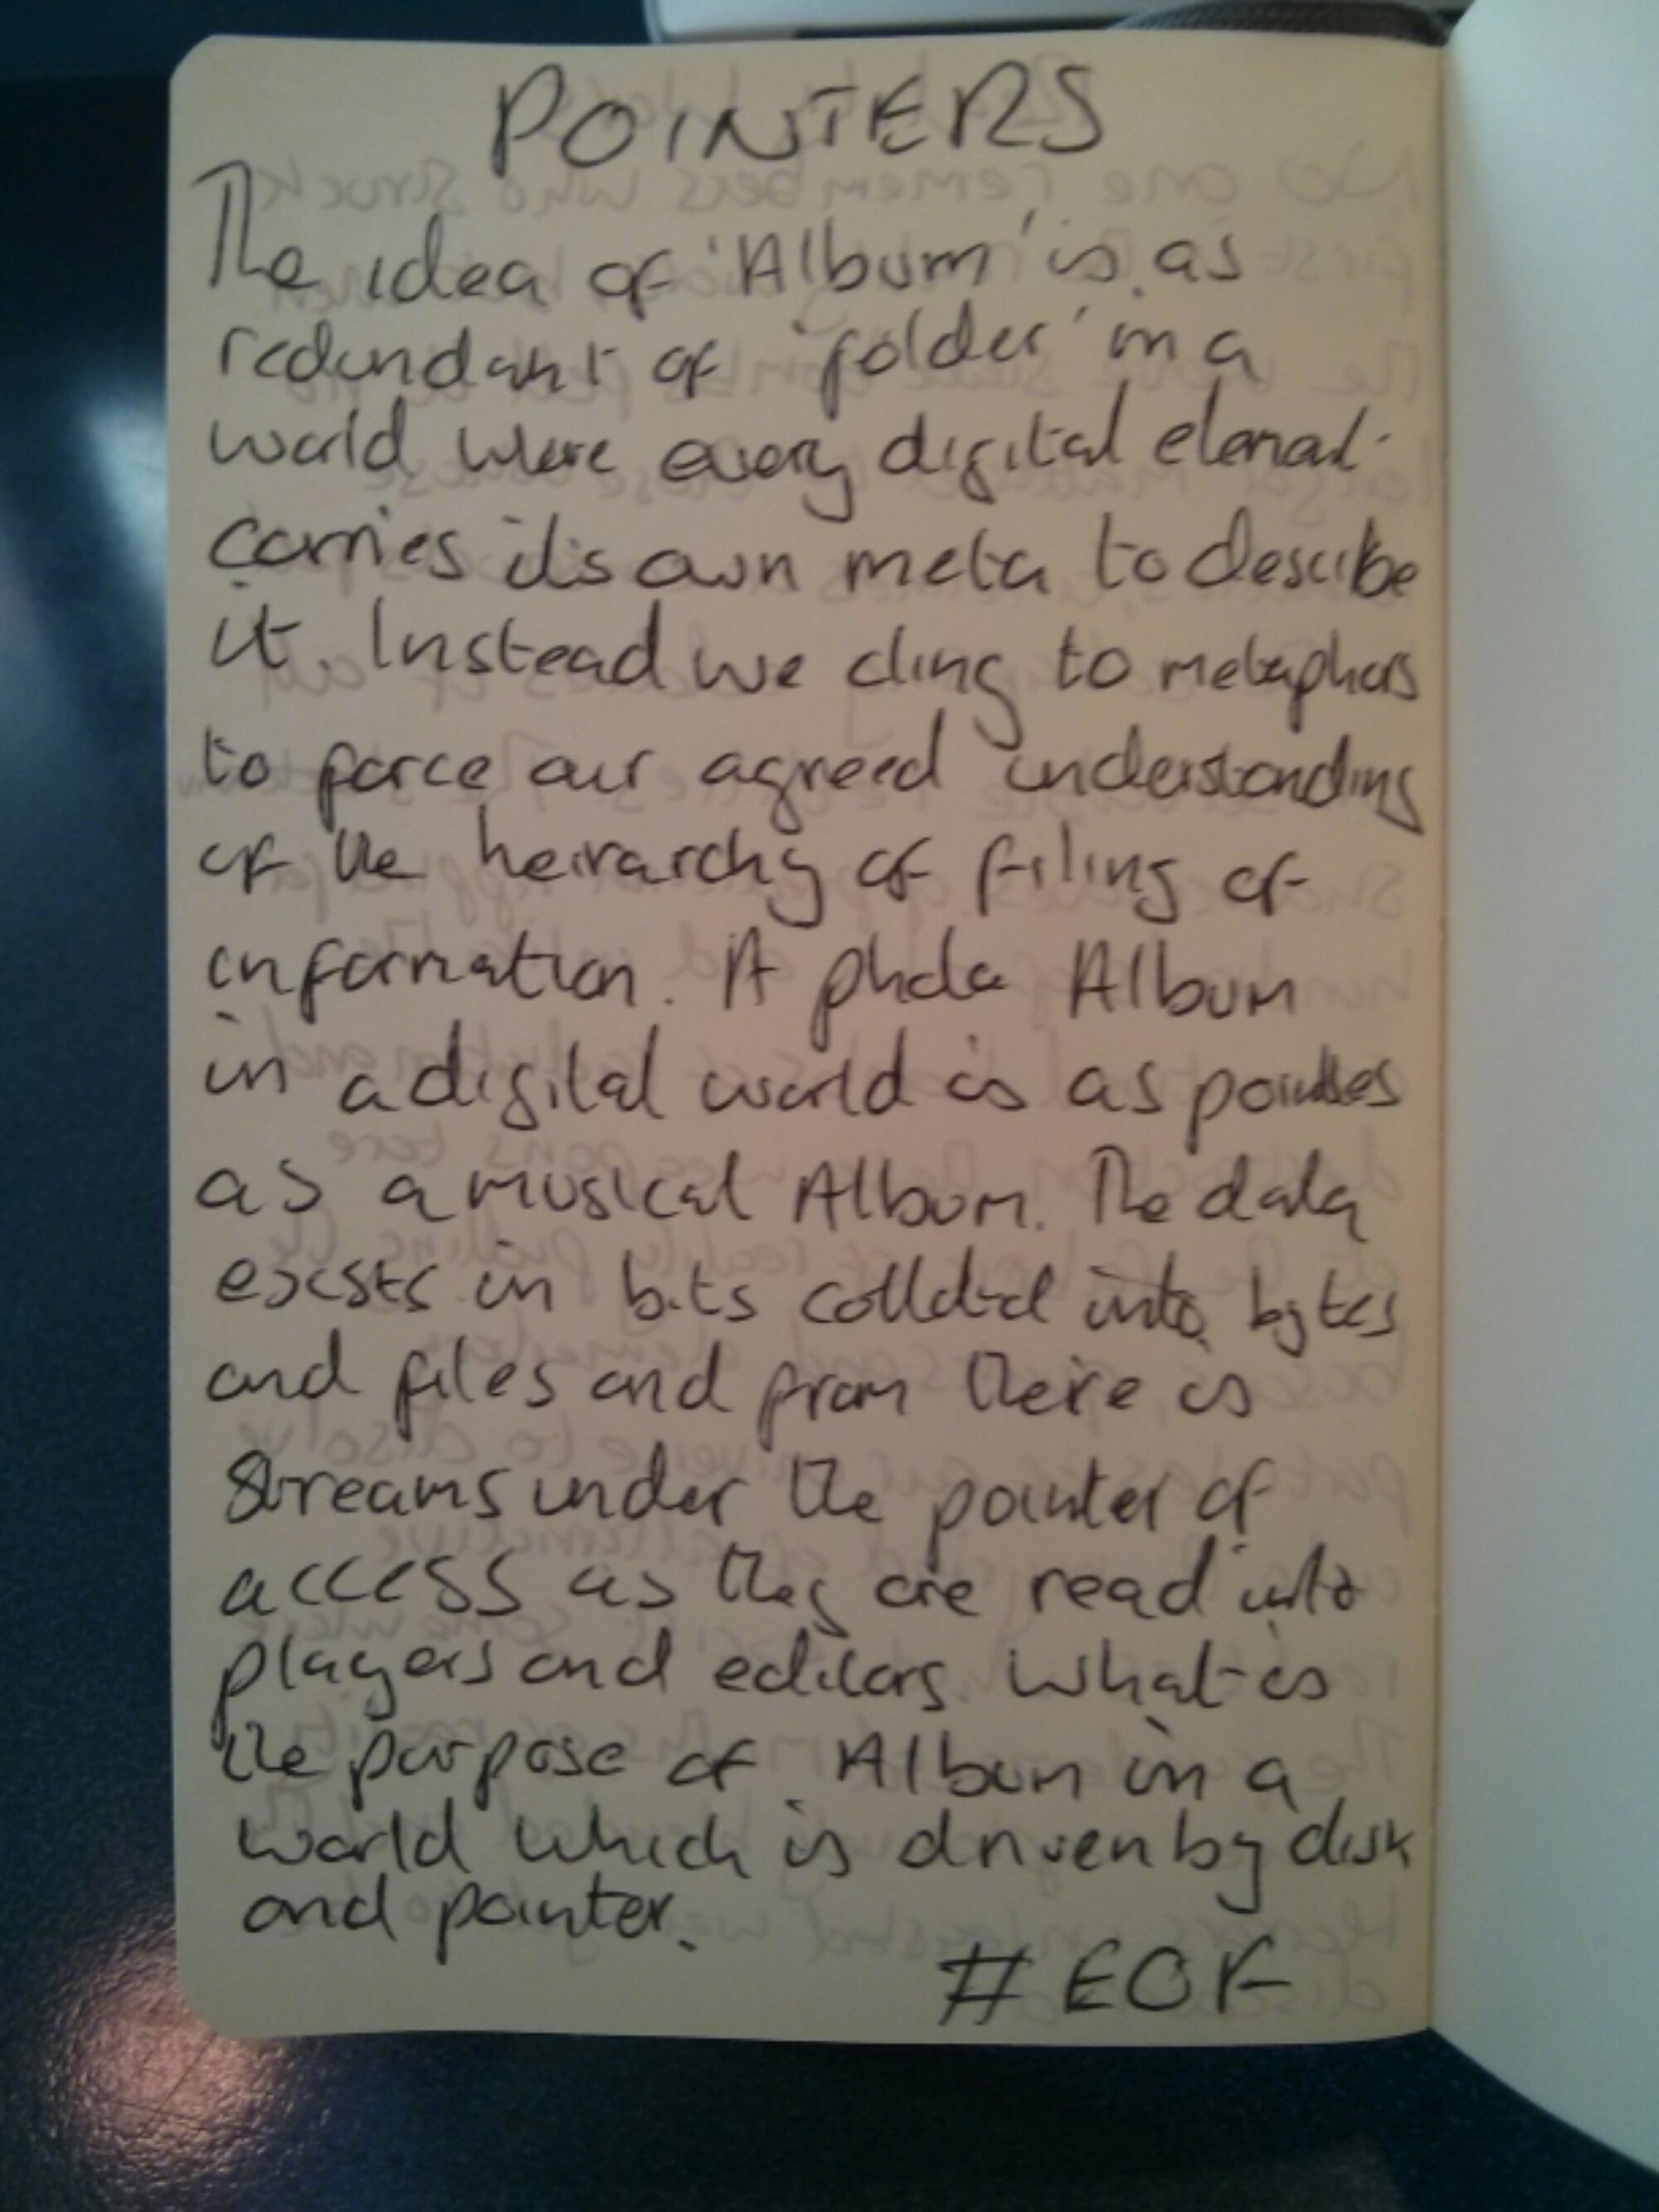 POINTERS
The idea of 'Album' is as
redundant of 'folder' in a
world where every digital element
carries it's own meta to describe
it. Instead we cling to metaphors
to force our agreed understanding
of the heirarchy of filing of
information. A photo Album
in a digital world is as pointles
as a musical Album. The data
exists in bits collected into bytes
and files and from there is
streams under the pointer of
access as they are read into
players and editors. What is
the purpose of Album in a
world which is driven by disk
and pointer.
#EOF